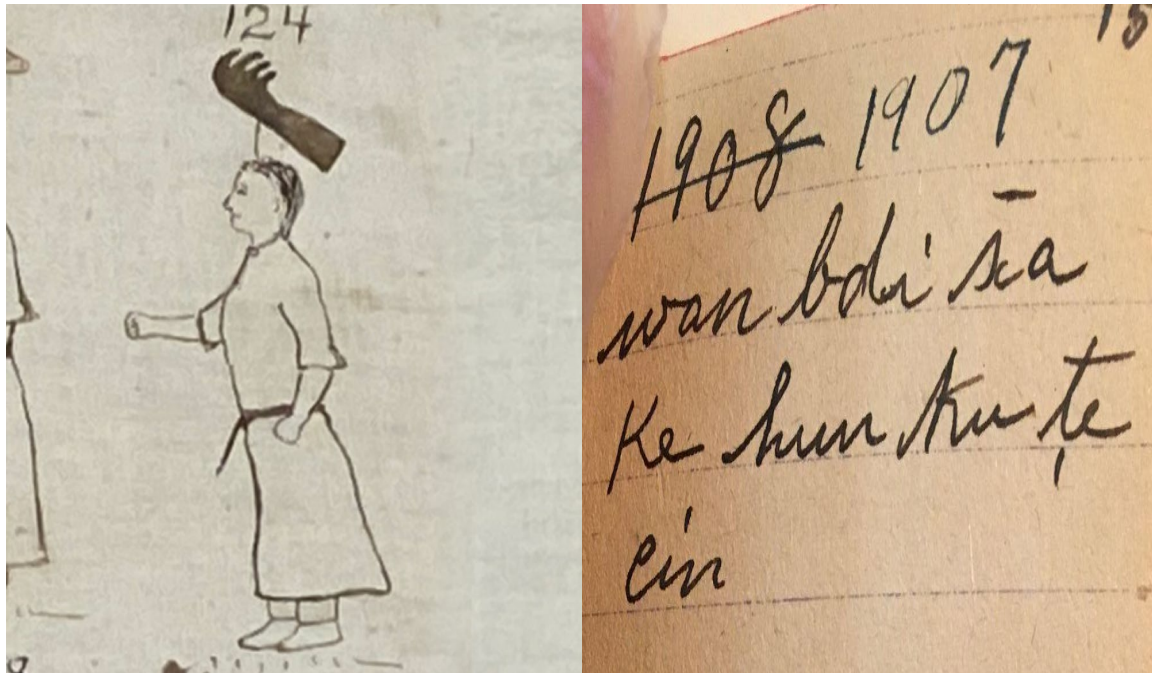 124
15
1908 1907
wan bdi s̄a
Ke hun ku ṭe
cin